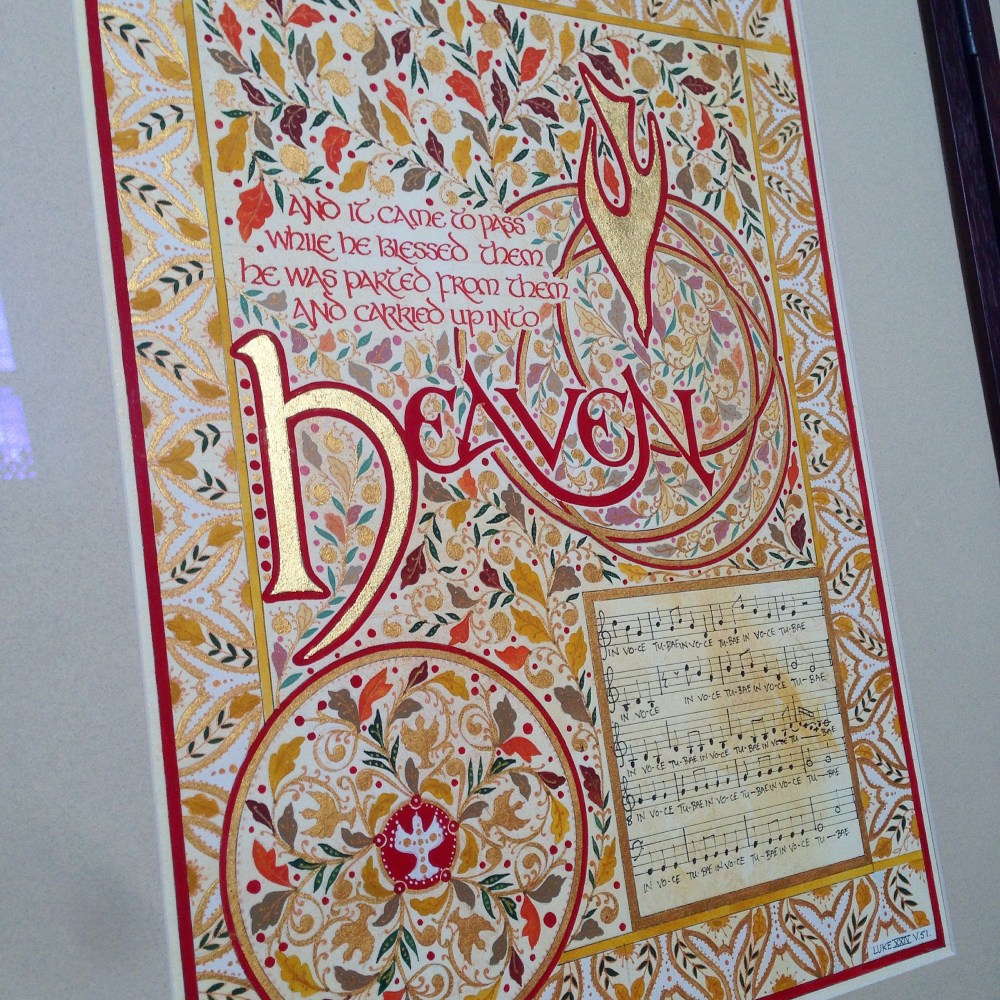 AND IT CAME TO PASS
WHILE HE BLESSED THEM
HE WAS PARTED FROM THEM
AND CARRIED UP INTO
HEAVEN
IN VO-CE TU-BAE IN VO-CE TU-BAE IN VO-CE TU-BAE
IN VO-CE IN VO-CE TU-BAE IN VO-CE TU-BAE
IN VO-CE TU-BAE IN VO-CE TU-BAE IN VO-CE TU-BAE
8 IN VO-CE TU-BAE IN VO-CE TU-BAE IN VO-CE TU-BAE
IN VO-CE TU-BAE IN VO-CE TU-BAE IN VO-CE TU-BAE
LUKE XXIV V.51.